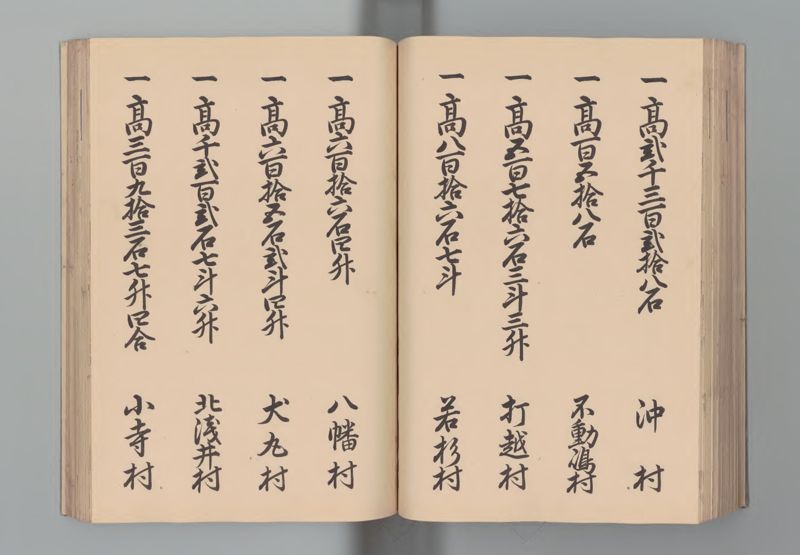 一 高弐千三百弐拾八石 沖村
一 高百五拾八石 不動嶋村
一 高五百七拾六石三斗三升 打越村
一 高八百拾六石七斗 若杉村
一 高六百拾六石四升 八幡村
一 高六百拾五石弐斗四升 犬丸村
一 高千弐百弐石七斗六升 北浅井村
一 高三百九拾三石七升四合 小寺村